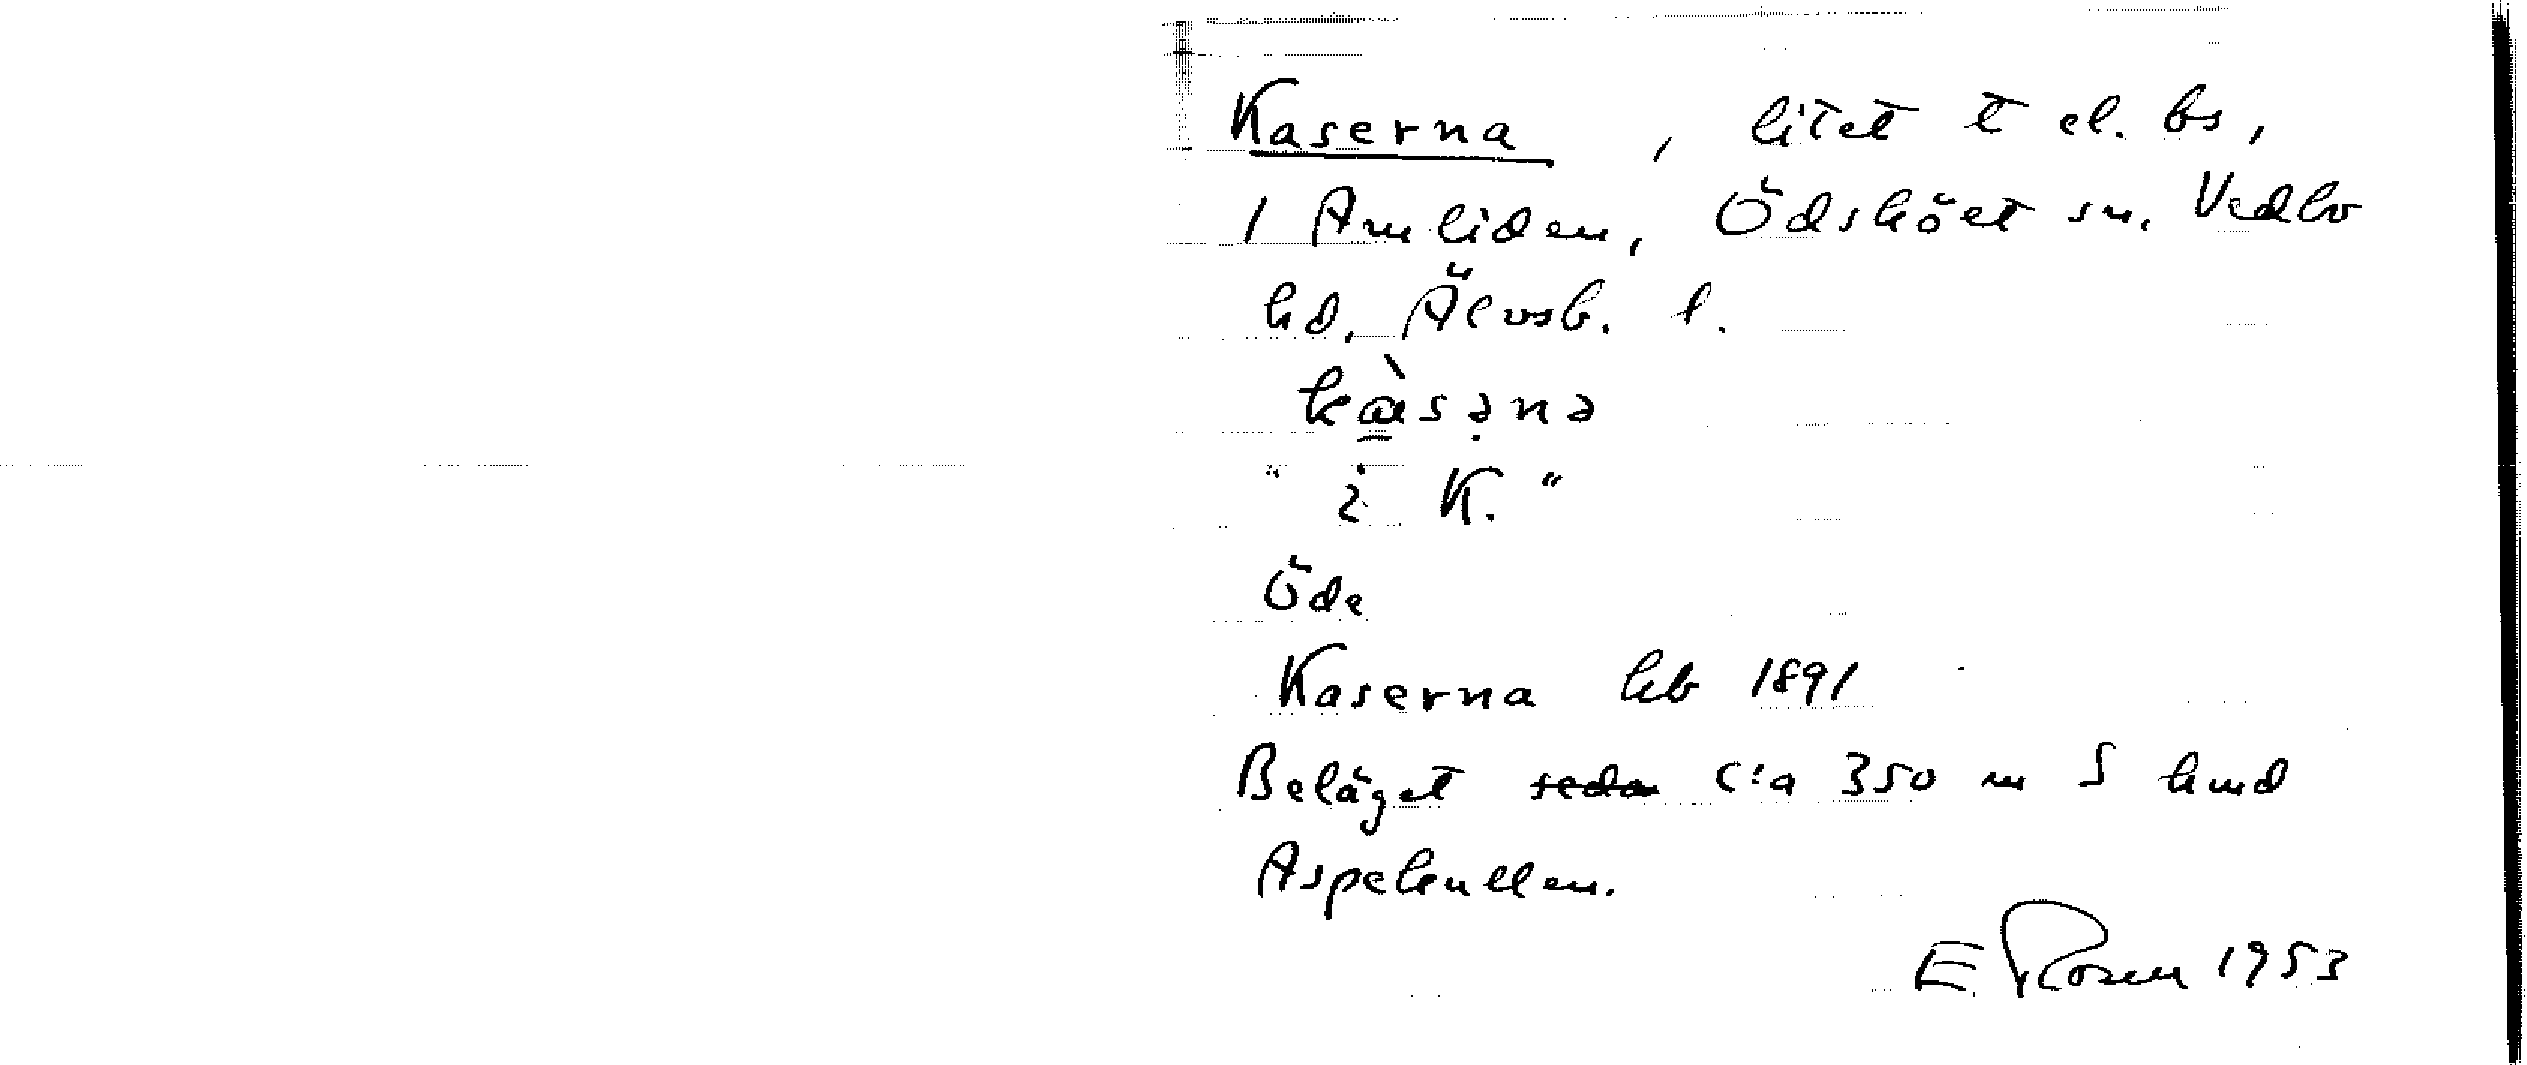 Kaserna, litet t el. bs,
i Amliden, Ödsköet sn. Vedbo
hd, Älvsb. l.
kàsənə
"i K."
Öde
Kaserna hb 1891
Beläget c:a 350 m S hmd
Aspekullen.
E Rosen 1953